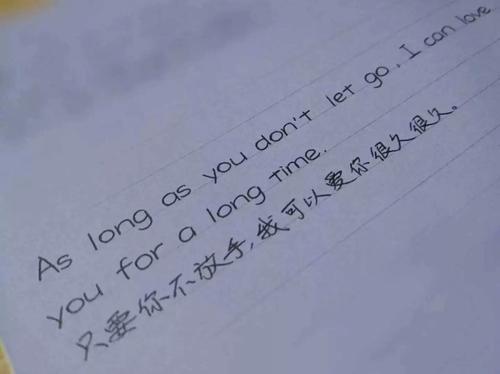 As long as you don't let go, I can love
you for a long time.
只要你不放手,我可以爱你很久很久。